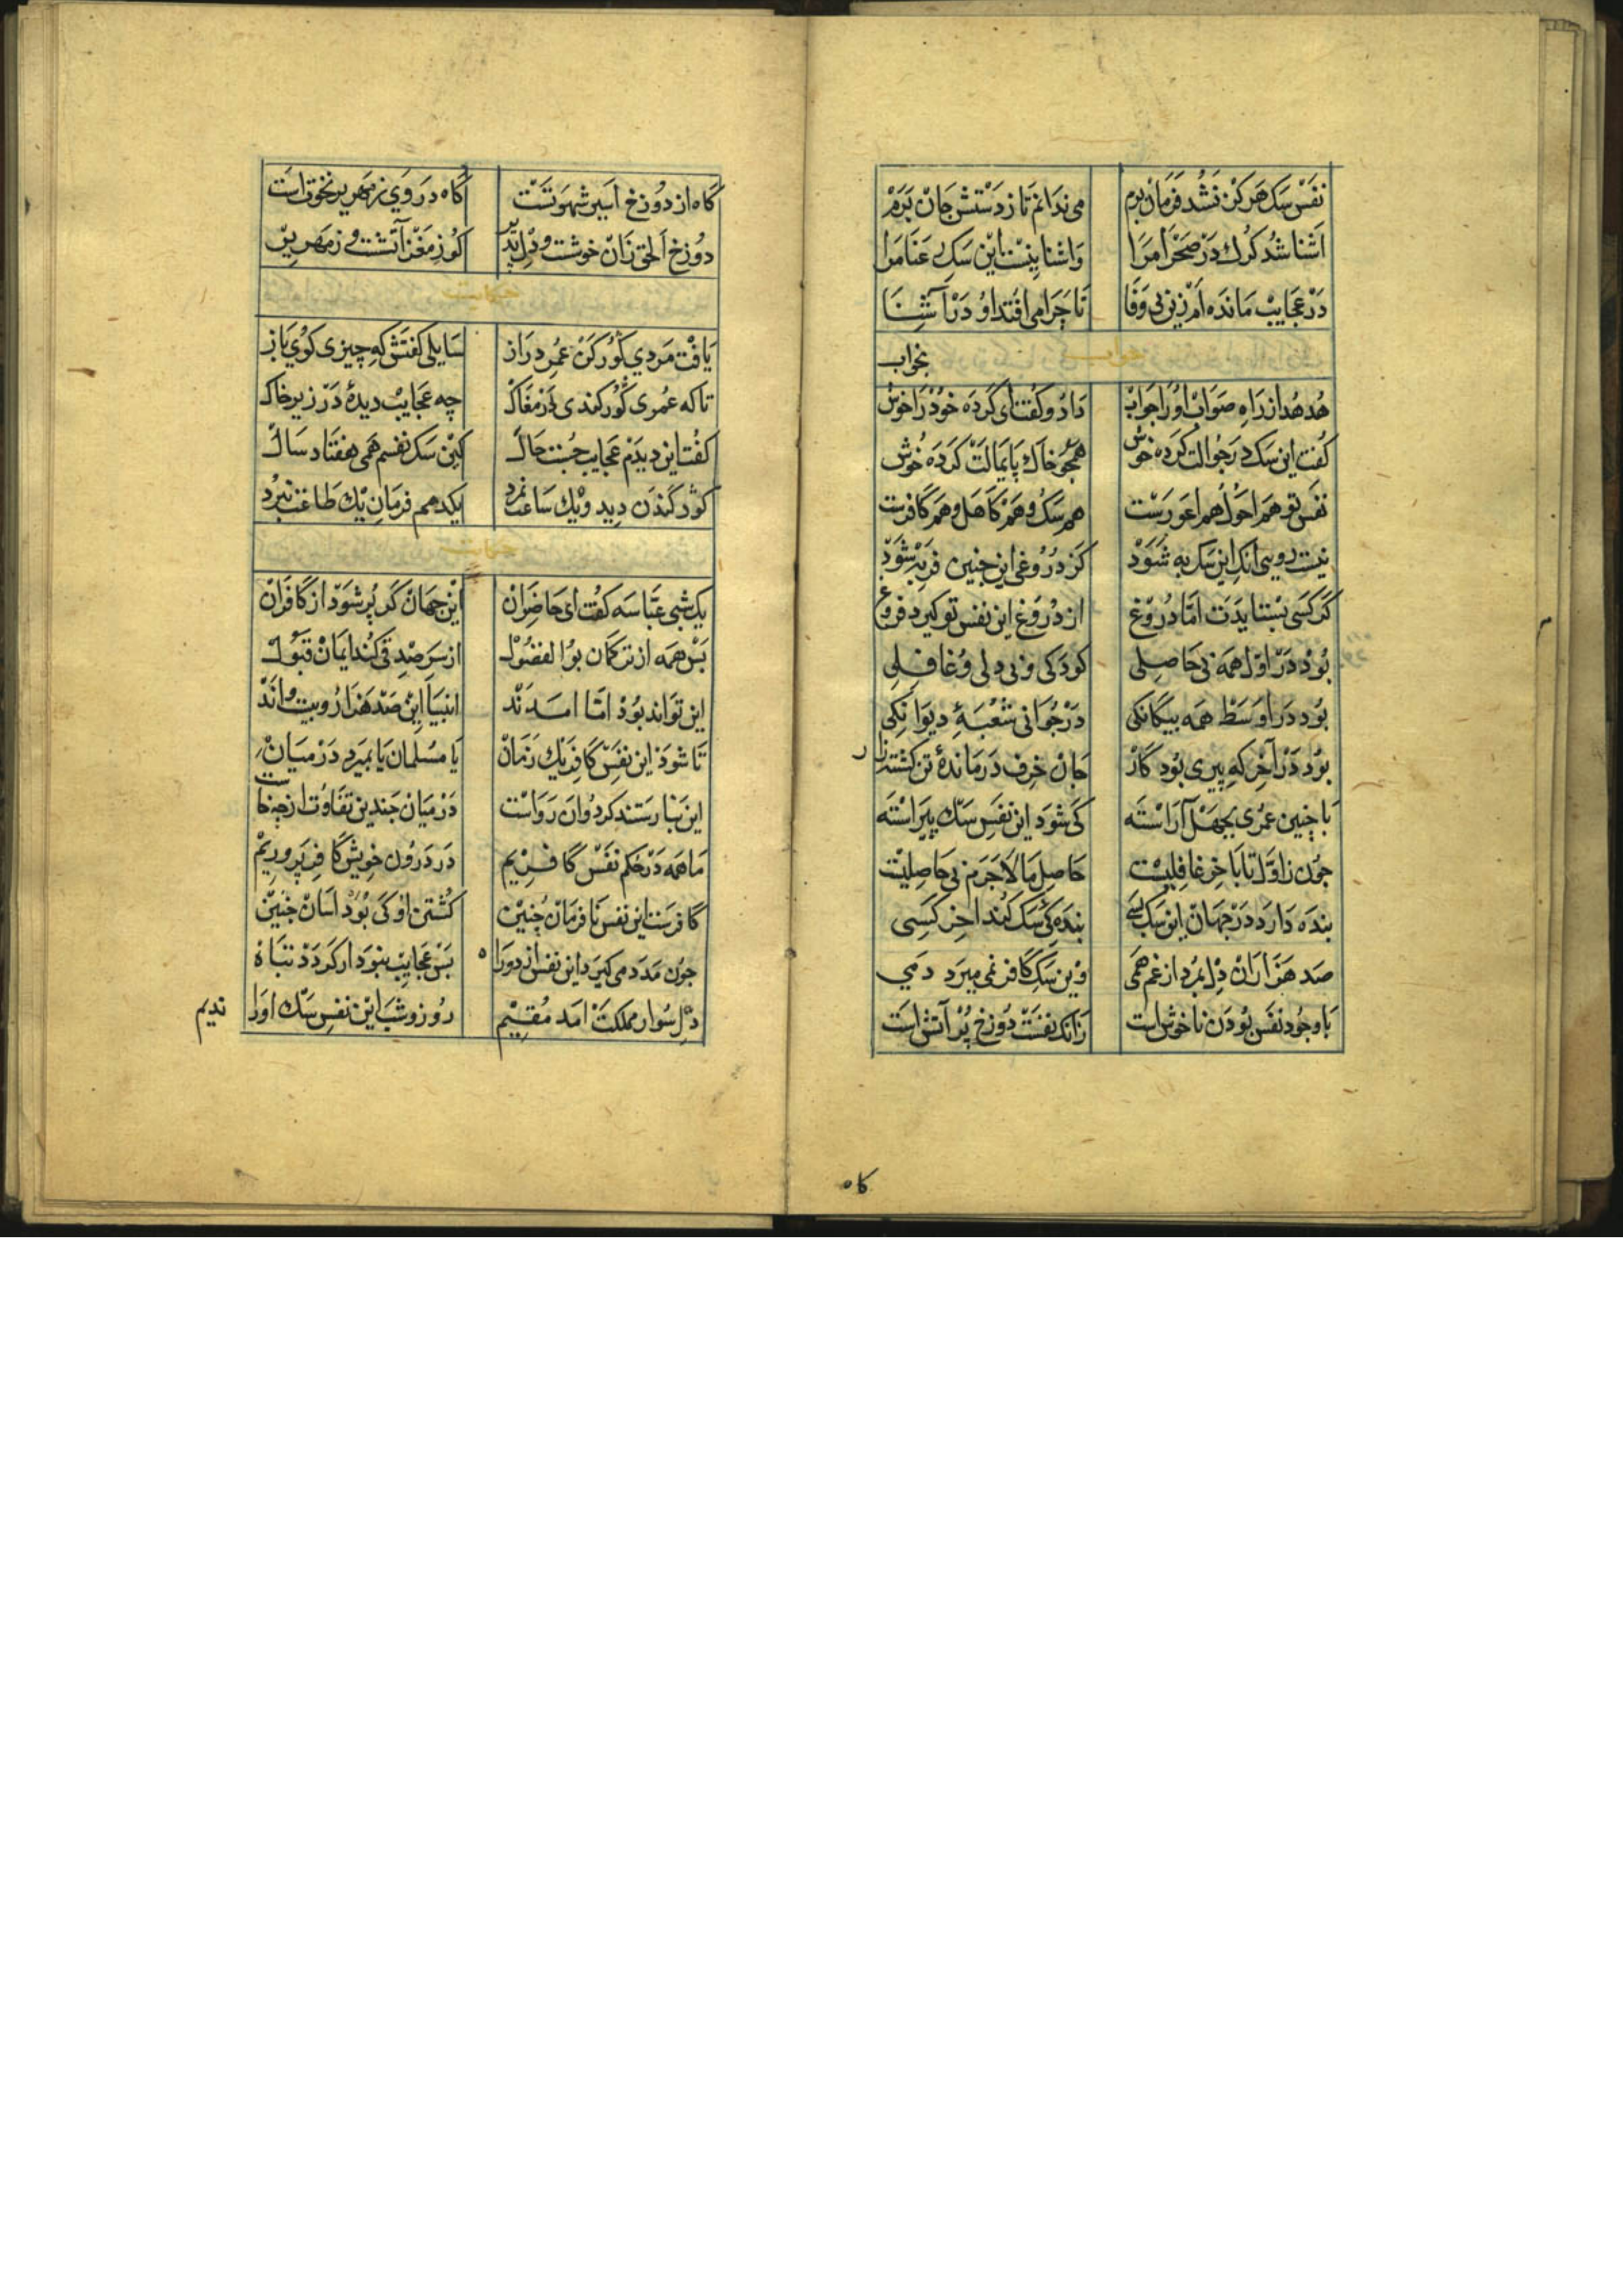 نفس سک هرکز نشد فرمان برم می ندانم تا ز دستش جان برم
اشنا شد کرک در صحرا مرا واشنا نیست این سک رعنا مرا
در عجایب مانده ام زین بی وفا تا چرا می افتد او در آشنا
هدهد از راه صواب او را جواب داد و کفت ای کرده خود را خوش بخواب
کفت این سک در جوالت کرده خوش همچو خاک پایمالت کرده خوش
نفس تو هم احول هم اعورست هم سک و هم کاهل و هم کافرست
کر کسی بستایدت اما دروغ از دروغ این نفس تو کیرد فروغ
نیست روی آنک این سک به شود کز دروغی این جنین فربه شود
بود در اول همه بی حاصلی کودکی و بی دلی و غافلی
بود در اوسط همه بیکانکی در جوانی شعبهٔ دیوانکی
بود در آخر که پیری بود کار جان خرف درماندهٔ تن کشته زار
با چنین عمری بجهل آراسته کی شود این نفس سک پیراسته
جون ز اول تا باخر غافلیست حاصل ما لاجرم بی حاصلیست
بنده دارد در جهان این سک بسی بندهٔ سک کند اخر کسی
صد هزاران دل بمرد از غم همی وین سک کافر نمی میرد دمی
با وجود نفس بودن ناخوش است زانک نفست دوزخ پر آتش است
کاه
گاه از دوزخ اسیر شهوتست گاه در وی زمهریر نخوت است
دوزخ الحق زان خوشست و دل پذیر کو ز مغز آتشست و زمهریر
حکایت
یافت مردی کورکن عمر دراز سایلی کفتش که چیزی کوی باز
تا که عمری گور کندی در مغاک چه عجایب دیدهٔ در زیر خاک
کفت این دیدم عجایب حسب حال کین سک نفسم همی هفتاد سال
کور کندن دید و یک ساعت نمرد یکدهم فرمان یک طاعت نبرد
حکایت
یک شبی عباسه کفت ای حاضران این جهان کر پر شود از کافران
بس همه از ترکمان بوالفضول از سر صدقی کند ایمان قبول
این تواند بود اما امدند انبیا این صد هزار و بیست و اند
تا شود این نفس کافر یک زمان یا مسلمان یا بمیرد در میان
این نیارستند کرد و ان رواست در میان جندین تفاوت از چه خاست
ما همه در حکم نفس کافریم در درون خویش کافر پروریم
کافرست این نفس نافرمان چنین کشتن او کی بود اسان جنین
جون مدد می کیرد این نفس از دو راه بس عجایب بنود ار کردد تباه
دل سوار مملکت امد مقیم روز و شب این نفس سک او را ندیم